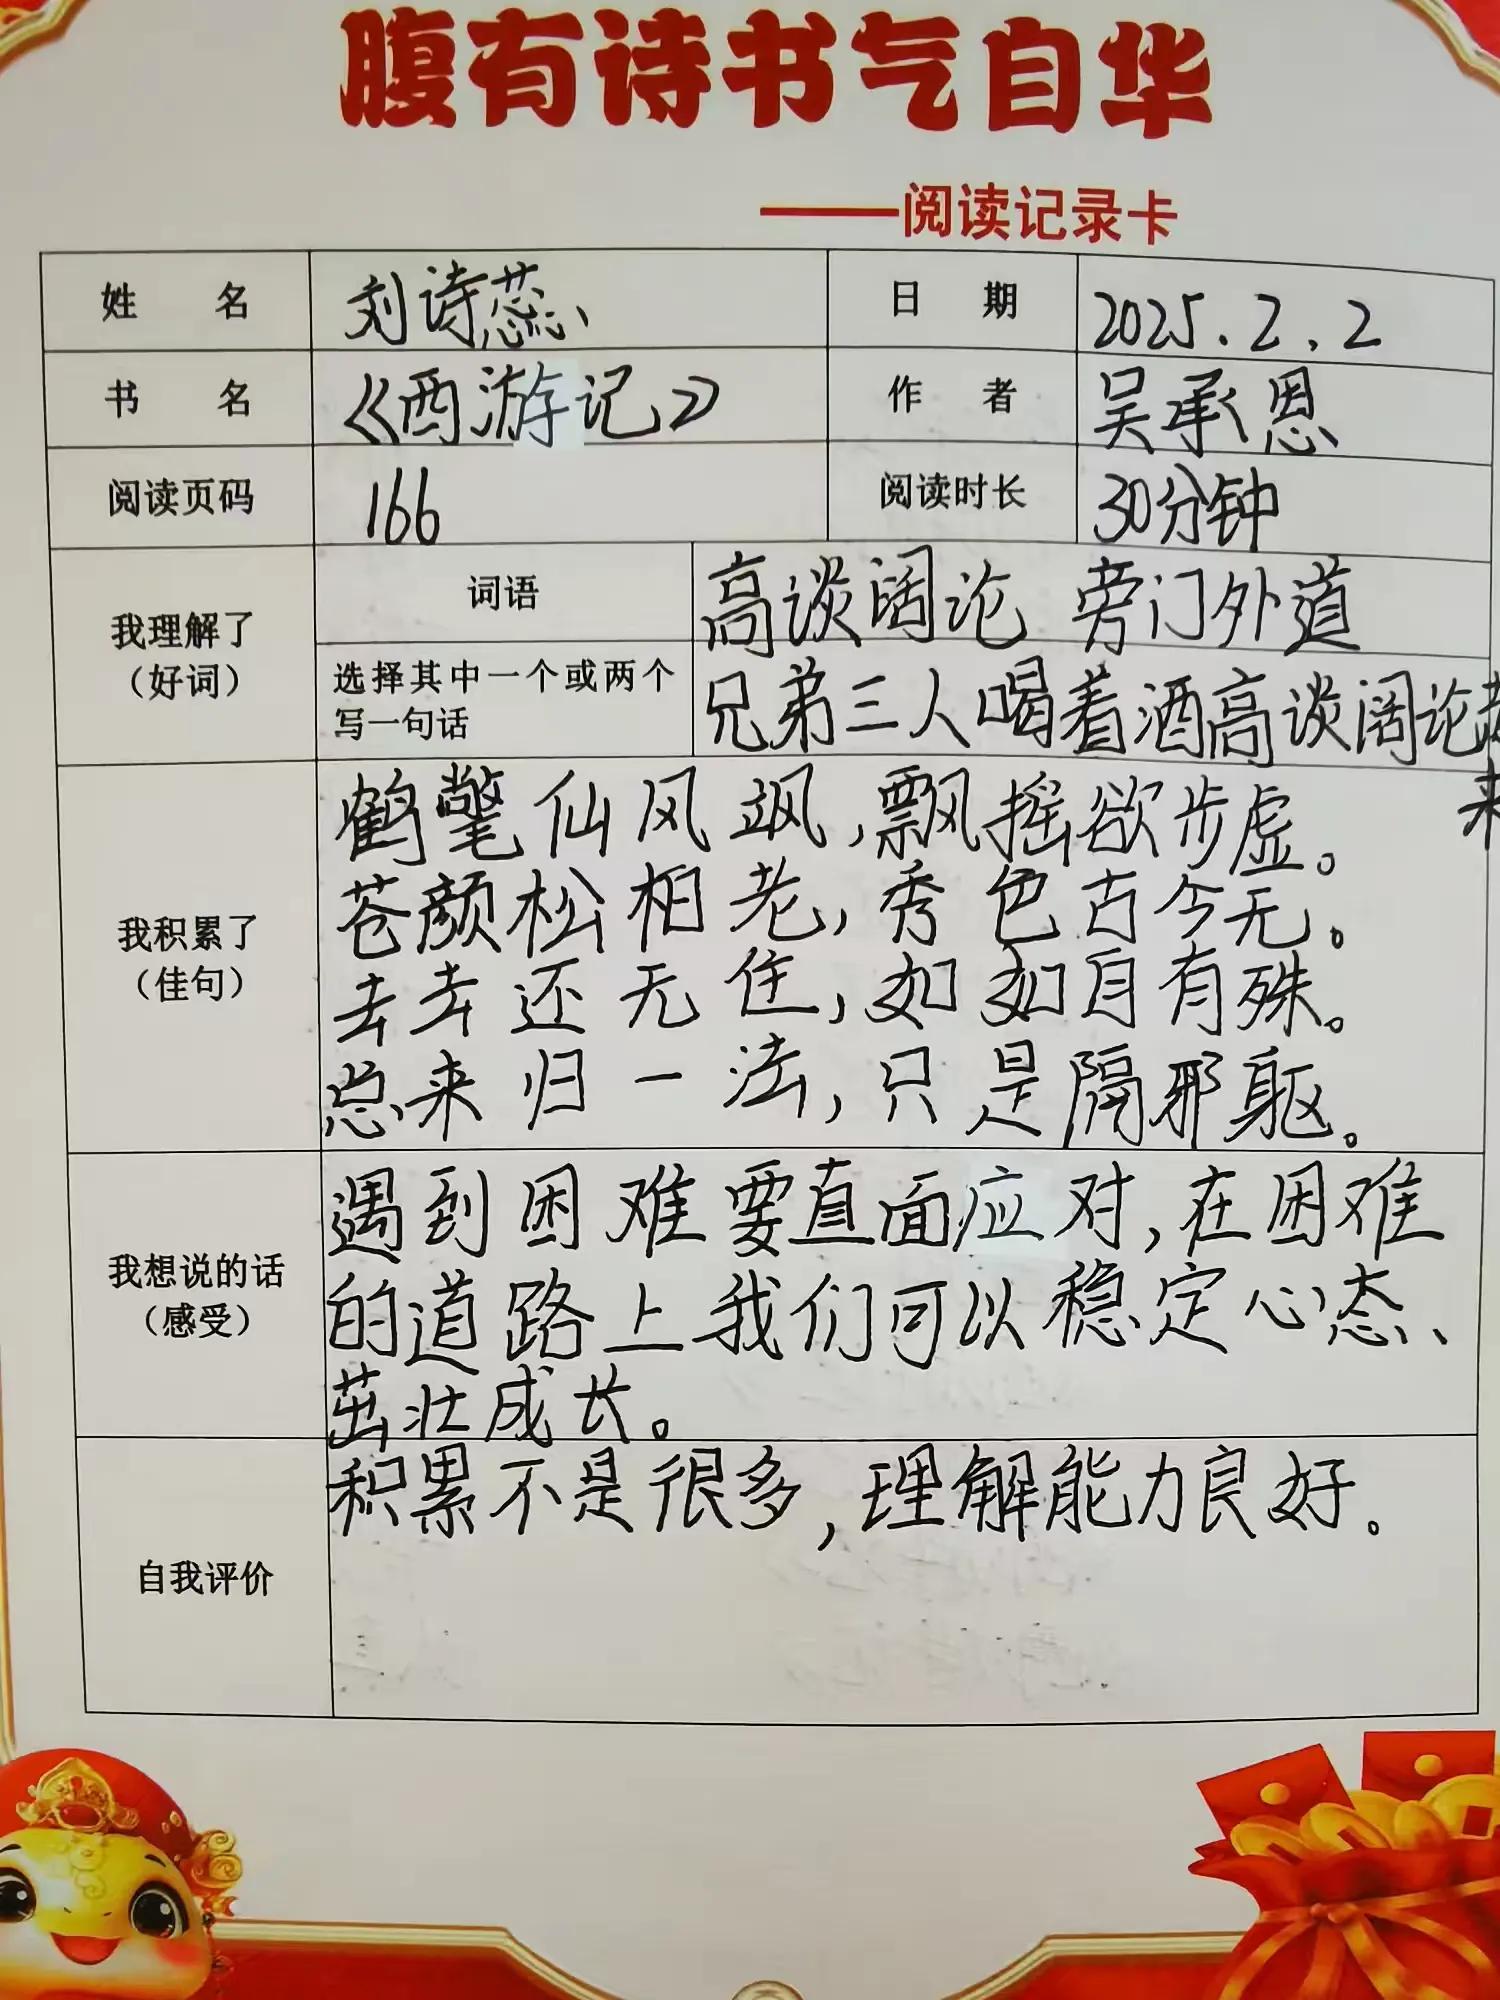 腹有诗书气自华
——阅读记录卡
姓 名 刘诗蕊 日 期 2025.2.2
书 名 《西游记》 作 者 吴承恩
阅读页码 166 阅读时长 30分钟
我理解了
（好词）
词语 高谈阔论 旁门外道
选择其中一个或两个
写一句话
兄弟三人喝着酒高谈阔论起
来
我积累了
（佳句）
鹤氅仙风飒,飘摇欲步虚。
苍颜松柏老,秀色古今无。
去去还无住,如如自有殊。
总来归一法,只是隔邪躯。
我想说的话
（感受）
遇到困难要直面应对,在困难
的道路上我们可以稳定心态、
茁壮成长。
自我评价
积累不是很多,理解能力良好.